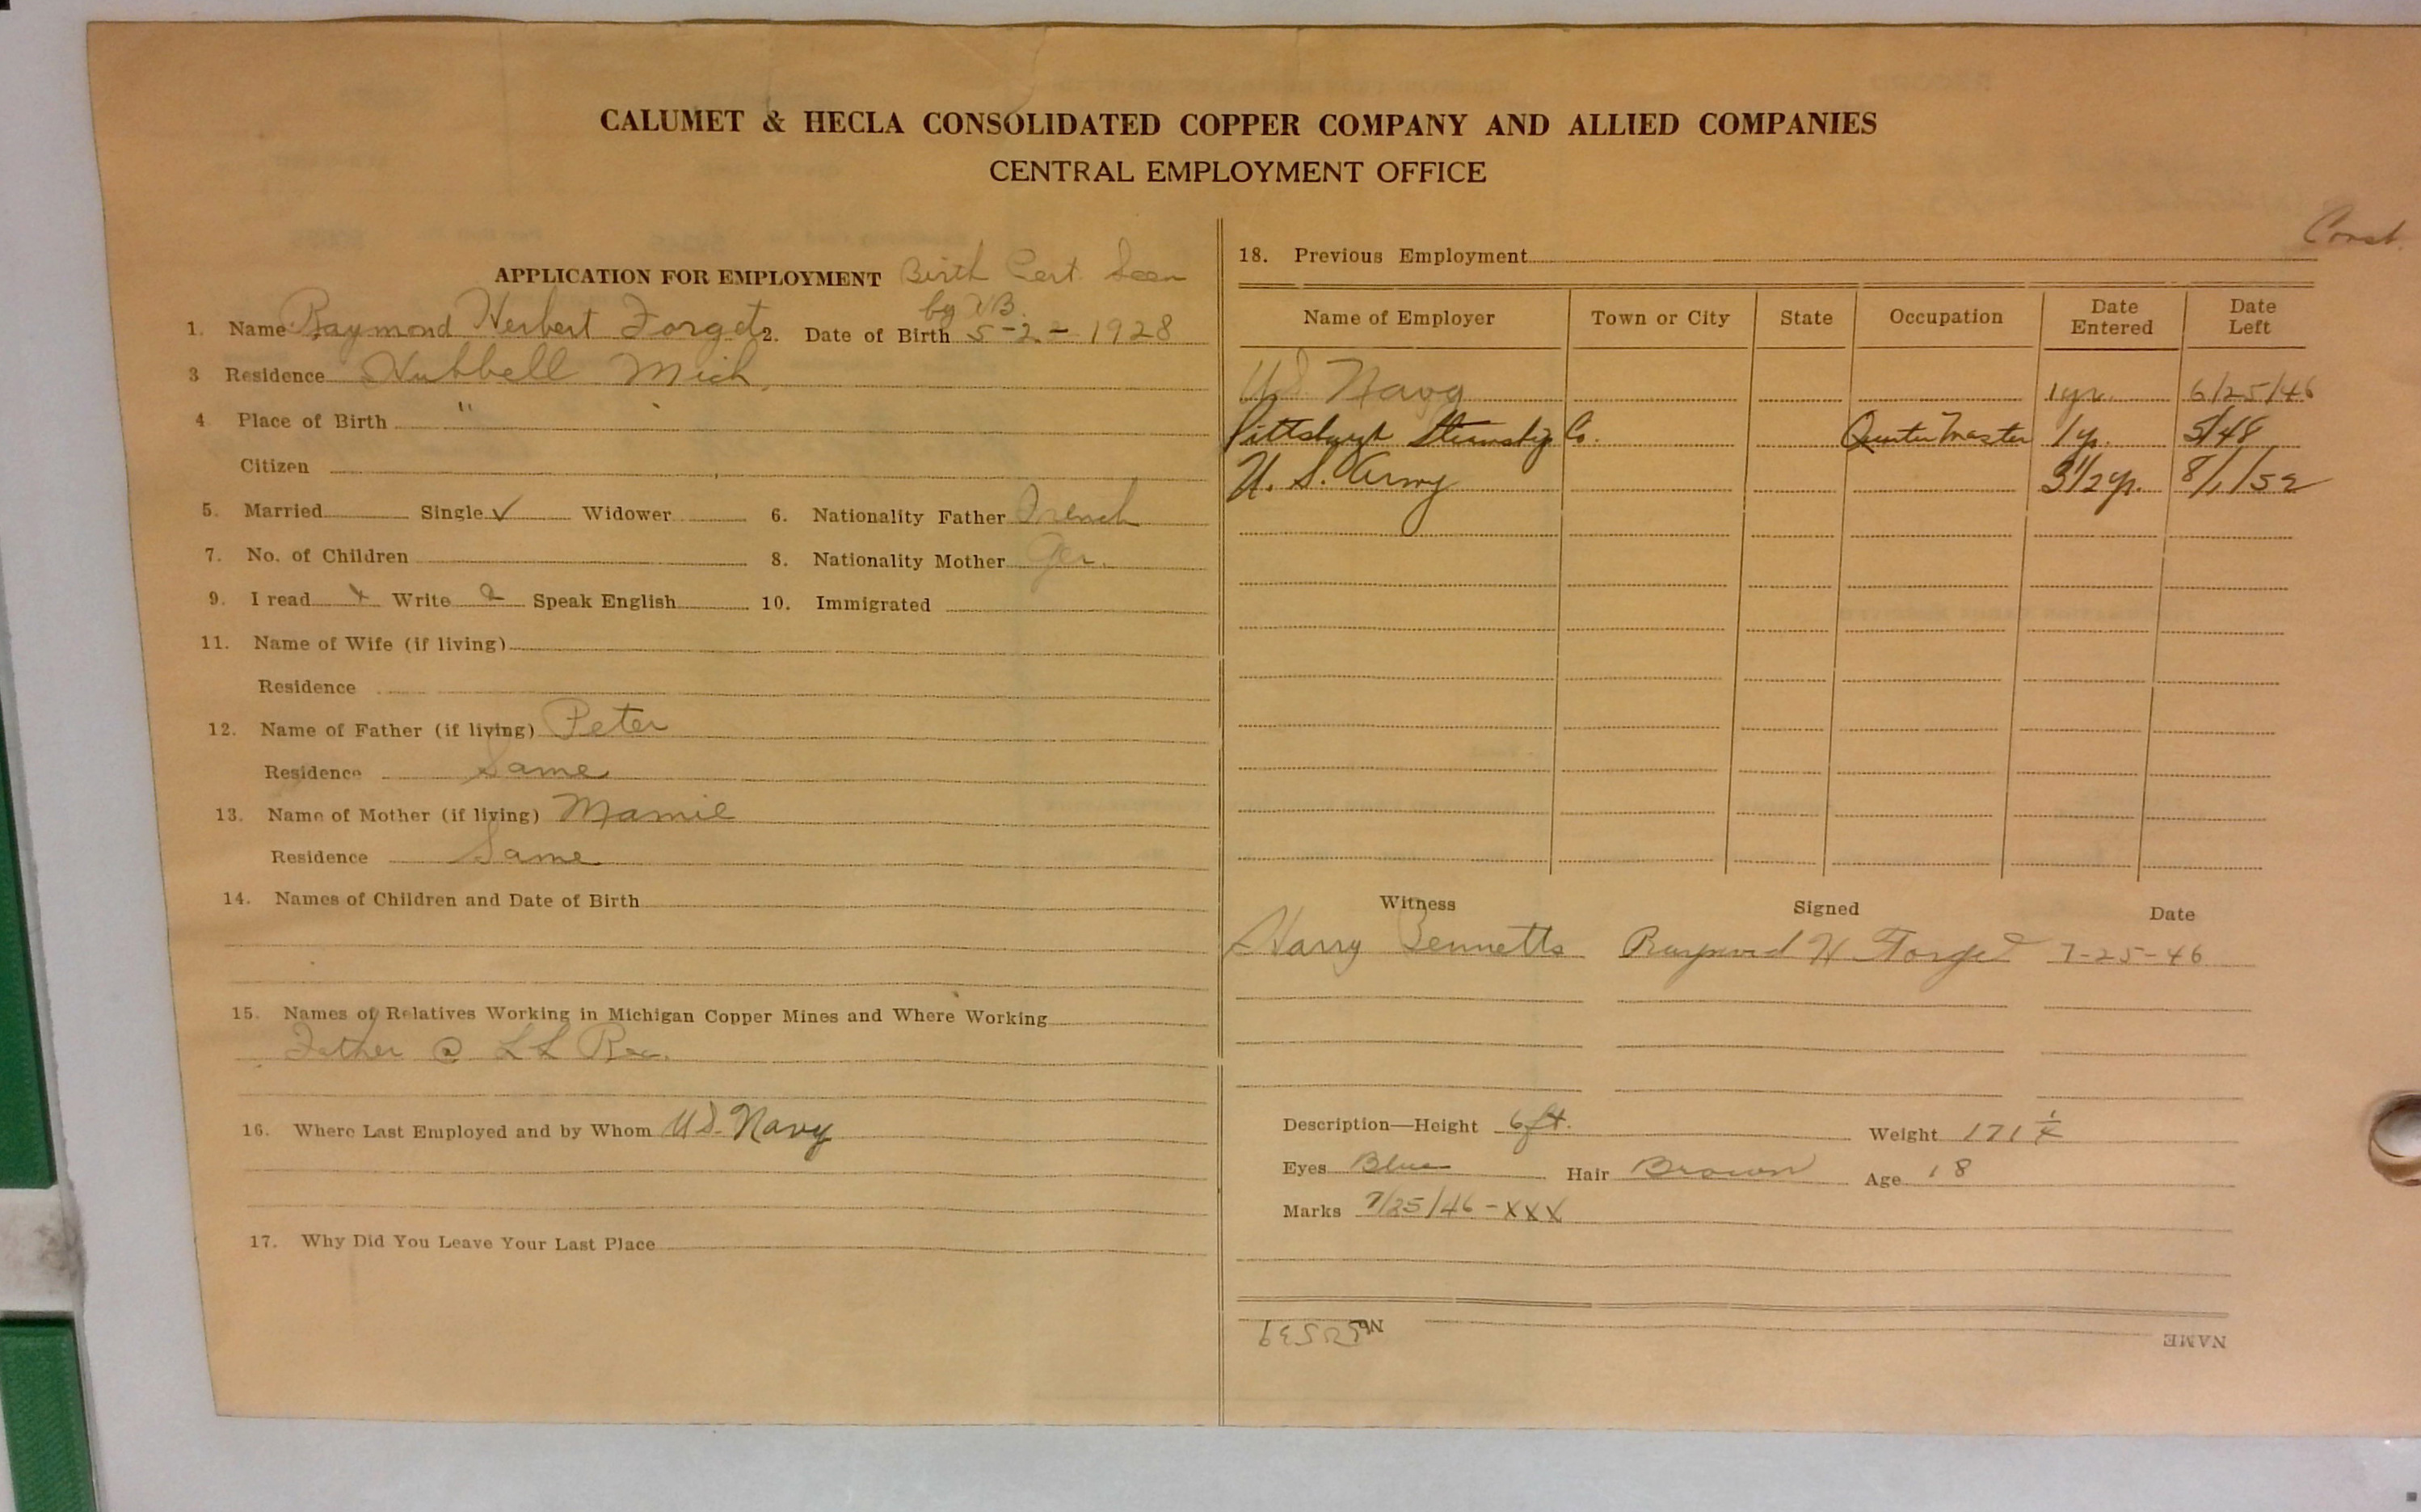 CALUMET & HECLA CONSOLIDATED COPPER COMPANY AND ALLIED COMPANIES
CENTRAL EMPLOYMENT OFFICE
APPLICATION FOR EMPLOYMENT Birth Cert. Seen
by HB.
1. Name Raymond Herbert Forget 2. Date of Birth 5-2-1928
3 Residence Hubbell Mich.
4 Place of Birth "
Citizen
5. Married Single ✓ Widower 6. Nationality Father French
7. No. of Children 8. Nationality Mother Ger.
9. I read Write Speak English 10. Immigrated
11. Name of Wife (if living)
Residence
12. Name of Father (if living) Peter
Residence Same
13. Name of Mother (if living) Mamie
Residence Same
14. Names of Children and Date of Birth
15. Names of Relatives Working in Michigan Copper Mines and Where Working
Father @ LL Rec.
16. Where Last Employed and by Whom U.S. Navy
17. Why Did You Leave Your Last Place
Const.
18. Previous Employment
Name of Employer Town or City State Occupation Date Entered Date Left
U.S. Navy 1 yr. 6/25/46
Pittsburgh Steamship Co. Quarter Master 1 yr. 5/48
U. S. Army 3 1/2 yr. 8/1/52
Witness Signed Date
Harry Bennetts Raymond H Forget 7-25-46
Description—Height 6 ft. Weight 171 1/4
Eyes Blue Hair Brown Age 18
Marks 7/25/46 - XXX
NAME No.